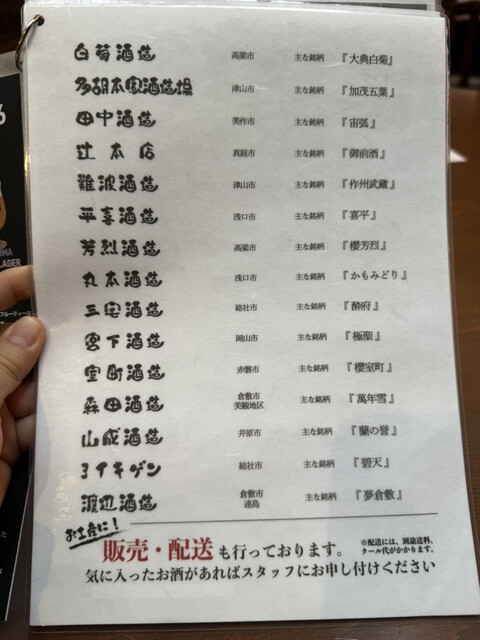 白菊酒造 高梁市 主な銘柄 『大典白菊』
多胡本家酒造場 津山市 主な銘柄 『加茂五葉』
田中酒造 美作市 主な銘柄 『宙狐』
辻本店 真庭市 主な銘柄 『御前酒』
難波酒造 津山市 主な銘柄 『作州武蔵』
平喜酒造 浅口市 主な銘柄 『喜平』
芳烈酒造 高梁市 主な銘柄 『櫻芳烈』
丸本酒造 浅口市 主な銘柄 『かもみどり』
三宅酒造 総社市 主な銘柄 『酔府』
宮下酒造 岡山市 主な銘柄 『極聖』
室町酒造 赤磐市 主な銘柄 『櫻室町』
森田酒造 倉敷市美観地区 主な銘柄 『萬年雪』
山成酒造 井原市 主な銘柄 『蘭の誉』
ヨイキゲン 総社市 主な銘柄 『碧天』
渡辺酒造 倉敷市連島 主な銘柄 『夢倉敷』
お土産に!
販売・配送も行っております。
※配送には、別途送料、
クール代がかかります。
気に入ったお酒があればスタッフにお申し付けください
LAGER